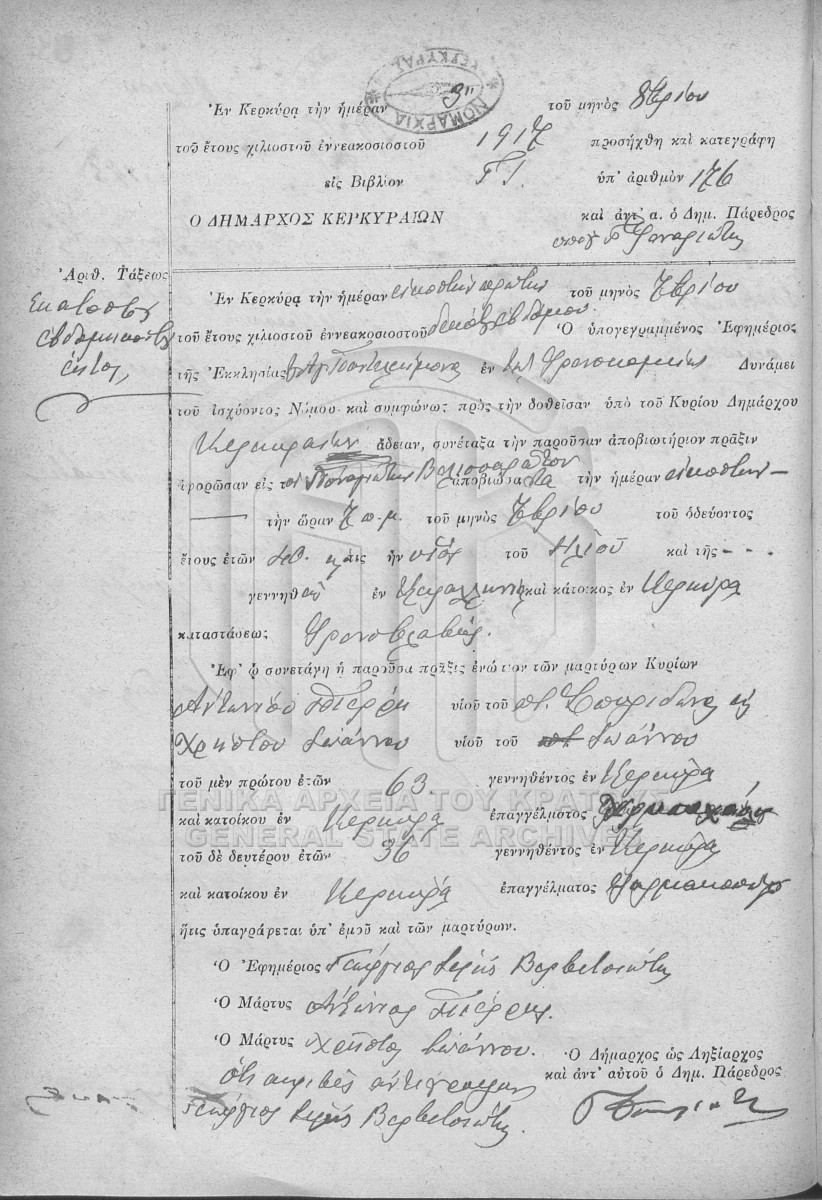 ΝΟΜΑΡΧΙΑ ΚΕΡΚΥΡΑΣ
Ἐν Κερκύρᾳ τὴν ἡμέραν 3ῃ τοῦ μηνὸς 8βρίου
τοῦ ἔτους χιλιοστοῦ ἐννεακοσιοστοῦ 1917 προσήχθη καὶ κατεγράφη
εἰς Βιβλίον Γ1. ὑπ' ἀριθμὸν 176
Ο ΔΗΜΑΡΧΟΣ ΚΕΡΚΥΡΑΙΩΝ καὶ ἀντ' α. ὁ Δημ. Πάρεδρος
Ἀριθ. Τάξεως
Ἑκατοστὴ
ἑβδομηκοστὴ
ἕκτη,
Ἐν Κερκύρᾳ τὴν ἡμέραν εἰκοστὴν πρώτην τοῦ μηνὸς 7βρίου
τοῦ ἔτους χιλιοστοῦ ἐννεακοσιοστοῦ δεκάτου ἑβδόμου. Ὁ ὑπογεγραμμένος Ἐφημέριος
τῆς Ἐκκλησίας Ἁγ. Παντελεήμονος ἐν τῷ Φρενοκομείῳ Δυνάμει
τοῦ ἰσχύοντος Νόμου καὶ συμφώνως πρὸς τὴν δοθεῖσαν ὑπὸ τοῦ Κυρίου Δημάρχου
Κερκυραίων ἄδειαν, συνέταξα τὴν παροῦσαν ἀποβιωτήριον πρᾶξιν
ἀφορῶσαν εἰς τὸν Παναγιώτην ἀποβιώσαντα τὴν ἡμέραν εἰκοστὴν
τὴν ὥραν 7 π.μ. τοῦ μηνὸς 7βρίου τοῦ ὁδεύοντος
ἔτους ἐτῶν ὅστις ἦν υἱὸς τοῦ Ἠλιοῦ καὶ τῆς - - -
γεννηθεὶς ἐν Κεφαλληνίᾳ καὶ κάτοικος ἐν Κέρκυρα
καταστάσεως Φρενοβλαβής.
Ἐφ' ᾧ συνετάγη ἡ παροῦσα πρᾶξις ἐνώπιον τῶν μαρτύρων Κυρίων
Ἀντωνίου Πιέρρη υἱοῦ τοῦ π. Σπυρίδωνος
Χρήστου Ἰωάννου υἱοῦ τοῦ Ἰωάννου
τοῦ μὲν πρώτου ἐτῶν 63. γεννηθέντος ἐν Κερκύρᾳ
καὶ κατοίκου ἐν Κερκύρᾳ ἐπαγγέλματος
τοῦ δὲ δευτέρου ἐτῶν 36 γεννηθέντος ἐν Κερκύρᾳ
καὶ κατοίκου ἐν Κερκύρᾳ ἐπαγγέλματος Φαρμακοποιοῦ
ἥτις ὑπαγράφεται ὑπ' ἐμοῦ καὶ τῶν μαρτύρων.
Ὁ Ἐφημέριος Γεώργιος Ἱερεὺς Βερβιτσιώτης
Ὁ Μάρτυς Ἀντώνιος Πιέρρης.
Ὁ Μάρτυς Χρῆστος Ἰωάννου.
Ὁ Δήμαρχος ὡς Ληξίαρχος
καὶ ἀντ' αὐτοῦ ὁ Δημ. Πάρεδρος
Ὅτι ἀκριβὲς ἀντίγραφον
Γεώργιος Ἱερεὺς Βερβιτσιώτης.
ΓΕΝΙΚΑ ΑΡΧΕΙΑ ΤΟΥ ΚΡΑΤΟΥΣ
GENERAL STATE ARCHIVES